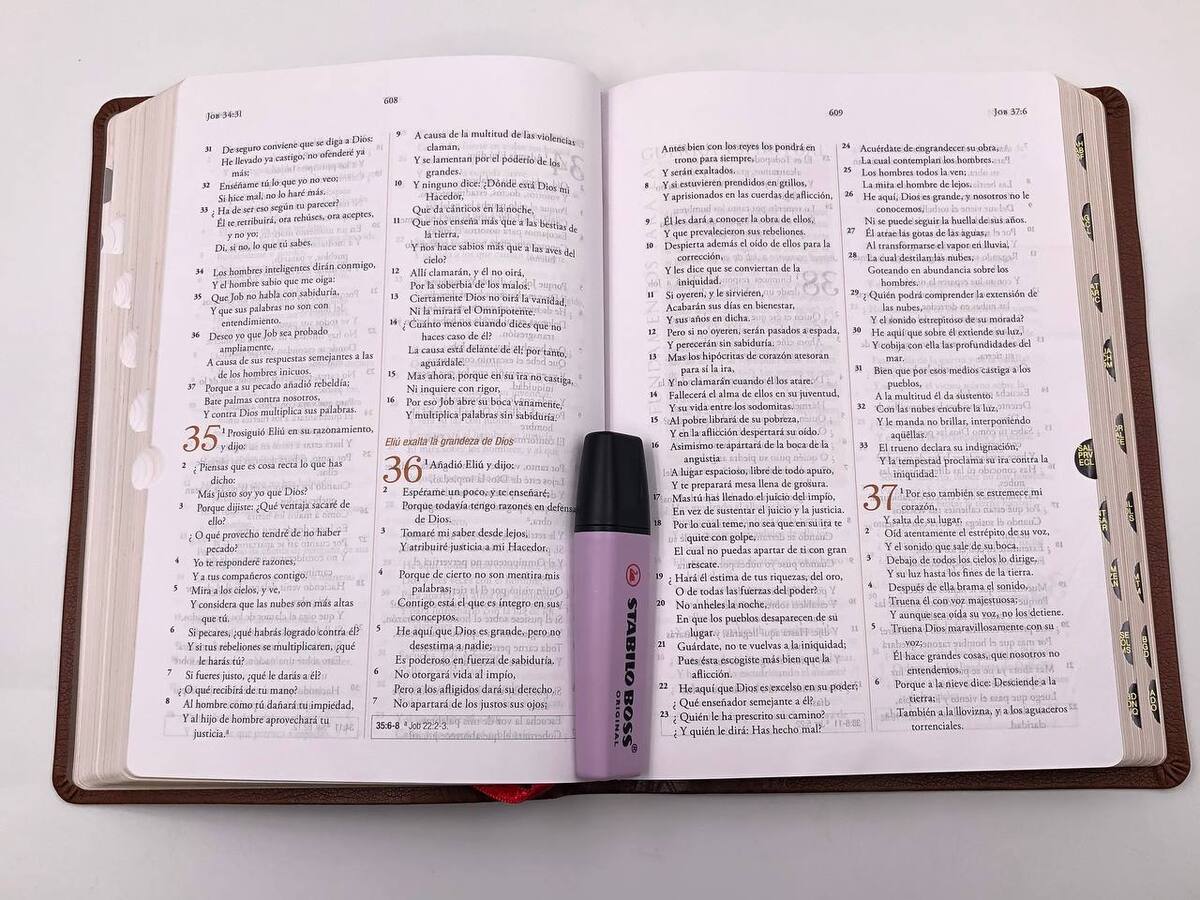 JOB 34:31
608
31 De seguro conviene que se diga a Dios:
He llevado ya castigo, no ofenderé ya
más;
32 Enséñame tú lo que yo no veo;
Si hice mal, no lo haré más.
33 ¿Ha de ser eso según tu parecer?
Él te retribuirá, ora rehúses, ora aceptes,
y no yo;
Di, si no, lo que tú sabes.
34 Los hombres inteligentes dirán conmigo,
Y el hombre sabio que me oiga:
35 Que Job no habla con sabiduría,
Y que sus palabras no son con
entendimiento.
36 Deseo yo que Job sea probado
ampliamente,
A causa de sus respuestas semejantes a las
de los hombres inicuos.
37 Porque a su pecado añadió rebeldía;
Bate palmas contra nosotros,
Y contra Dios multiplica sus palabras.
35 1 Prosiguió Eliú en su razonamiento,
y dijo:
2 ¿Piensas que es cosa recta lo que has
dicho:
Más justo soy yo que Dios?
3 Porque dijiste: ¿Qué ventaja sacaré de
ello?
¿O qué provecho tendré de no haber
pecado?
4 Yo te responderé razones,
Y a tus compañeros contigo.
5 Mira a los cielos, y ve,
Y considera que las nubes son más altas
que tú.
6 Si pecares, ¿qué habrás logrado contra él?
Y si tus rebeliones se multiplicaren, ¿qué
le harás tú?
7 Si fueres justo, ¿qué le darás a él?
¿O qué recibirá de tu mano?
8 Al hombre como tú dañará tu impiedad,
Y al hijo de hombre aprovechará tu
justicia.a
9 A causa de la multitud de las violencias
claman,
Y se lamentan por el poderío de los
grandes.
10 Y ninguno dice: ¿Dónde está Dios mi
Hacedor,
Que da cánticos en la noche,
11 Que nos enseña más que a las bestias de
la tierra,
Y nos hace sabios más que a las aves del
cielo?
12 Allí clamarán, y él no oirá,
Por la soberbia de los malos.
13 Ciertamente Dios no oirá la vanidad,
Ni la mirará el Omnipotente.
14 ¿Cuánto menos cuando dices que no
haces caso de él?
La causa está delante de él; por tanto,
aguárdale.
15 Mas ahora, porque en su ira no castiga,
Ni inquiere con rigor,
16 Por eso Job abre su boca vanamente,
Y multiplica palabras sin sabiduría.
Eliú exalta la grandeza de Dios
36 1 Añadió Eliú y dijo:
2 Espérame un poco, y te enseñaré;
Porque todavía tengo razones en defensa
de Dios.
3 Tomaré mi saber desde lejos,
Y atribuiré justicia a mi Hacedor.
4 Porque de cierto no son mentira mis
palabras;
Contigo está el que es íntegro en sus
conceptos.
5 He aquí que Dios es grande, pero no
desestima a nadie;
Es poderoso en fuerza de sabiduría.
6 No otorgará vida al impío,
Pero a los afligidos dará su derecho.
7 No apartará de los justos sus ojos;
35:6-8 a Job 22:2-3
STABILO BOSS®
ORIGINAL
609
JOB 37:6
Antes bien con los reyes los pondrá en
trono para siempre,
Y serán exaltados.
8 Y si estuvieren prendidos en grillos,
Y aprisionados en las cuerdas de aflicción,
9 Él les dará a conocer la obra de ellos,
Y que prevalecieron sus rebeliones.
10 Despierta además el oído de ellos para la
corrección,
Y les dice que se conviertan de la
iniquidad.
11 Si oyeren, y le sirvieren,
Acabarán sus días en bienestar,
Y sus años en dicha.
12 Pero si no oyeren, serán pasados a espada,
Y perecerán sin sabiduría.
13 Mas los hipócritas de corazón atesoran
para sí la ira,
Y no clamarán cuando él los atare.
14 Fallecerá el alma de ellos en su juventud,
Y su vida entre los sodomitas.
15 Al pobre librará de su pobreza,
Y en la aflicción despertará su oído.
16 Asimismo te apartará de la boca de la
angustia
A lugar espacioso, libre de todo apuro,
Y te preparará mesa llena de grosura.
17 Mas tú has llenado el juicio del impío,
En vez de sustentar el juicio y la justicia.
18 Por lo cual teme, no sea que en su ira te
quite con golpe,
El cual no puedas apartar de ti con gran
rescate.
19 ¿Hará él estima de tus riquezas, del oro,
O de todas las fuerzas del poder?
20 No anheles la noche,
En que los pueblos desaparecen de su
lugar.
21 Guárdate, no te vuelvas a la iniquidad;
Pues ésta escogiste más bien que la
aflicción.
22 He aquí que Dios es excelso en su poder;
¿Qué enseñador semejante a él?
23 ¿Quién le ha prescrito su camino?
¿Y quién le dirá: Has hecho mal?
24 Acuérdate de engrandecer su obra,
La cual contemplan los hombres.
25 Los hombres todos la ven;
La mira el hombre de lejos.
26 He aquí, Dios es grande, y nosotros no le
conocemos,
Ni se puede seguir la huella de sus años.
27 Él atrae las gotas de las aguas,
Al transformarse el vapor en lluvia,
28 La cual destilan las nubes,
Goteando en abundancia sobre los
hombres.
29 ¿Quién podrá comprender la extensión de
las nubes,
Y el sonido estrepitoso de su morada?
30 He aquí que sobre él extiende su luz,
Y cobija con ella las profundidades del
mar.
31 Bien que por esos medios castiga a los
pueblos,
A la multitud él da sustento.
32 Con las nubes encubre la luz,
Y le manda no brillar, interponiendo
aquéllas.
33 El trueno declara su indignación,
Y la tempestad proclama su ira contra la
iniquidad.
37 1 Por eso también se estremece mi
corazón,
Y salta de su lugar.
2 Oíd atentamente el estrépito de su voz,
Y el sonido que sale de su boca.
3 Debajo de todos los cielos lo dirige,
Y su luz hasta los fines de la tierra.
4 Después de ella brama el sonido,
Truena él con voz majestuosa;
Y aunque sea oída su voz, no los detiene.
5 Truena Dios maravillosamente con su
voz;
Él hace grandes cosas, que nosotros no
entendemos.
6 Porque a la nieve dice: Desciende a la
tierra;
También a la llovizna, y a los aguaceros
torrenciales.
SAL
PRV
ECL